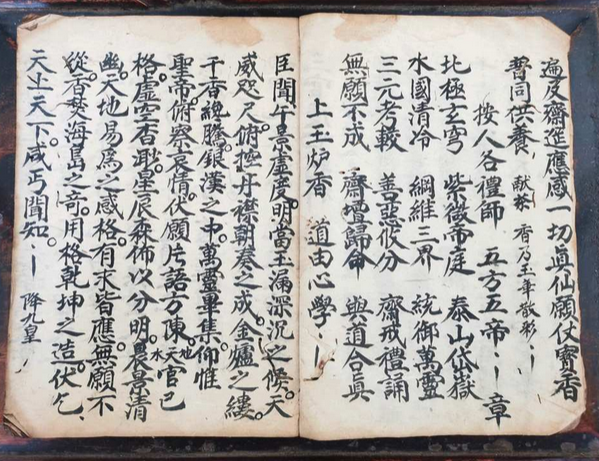 遍及齋筵應感一切真仙願仗寶香
普同供養 献祭 香乃玉華散彩
按人各禮師 五方五帝 章
北極玄穹 紫微帝庭 泰山岱嶽
水國清冷 綱維三界 統御萬靈
三元考較 善惡攸分 齋戒禮誦
無願不成 齋壇歸命 與道合真
上玉炉香 道由心學
臣聞午景虛度。明當玉漏深沉之候。天
威咫尺。俯控丹襟。朝奏之成。金爐之縷。
千香繞騰。銀漢之中。萬靈畢集。仰惟
聖帝。俯察哀情。伏願片語方陳。天地水官已
格。虛空香渺。星辰森佈以分明。農景清
幽。天地易為之感格。有求皆應。無願不
從。香焚海島之竒。用格乾坤之造。伏乞
天上天下。咸丐聞知 降九皇